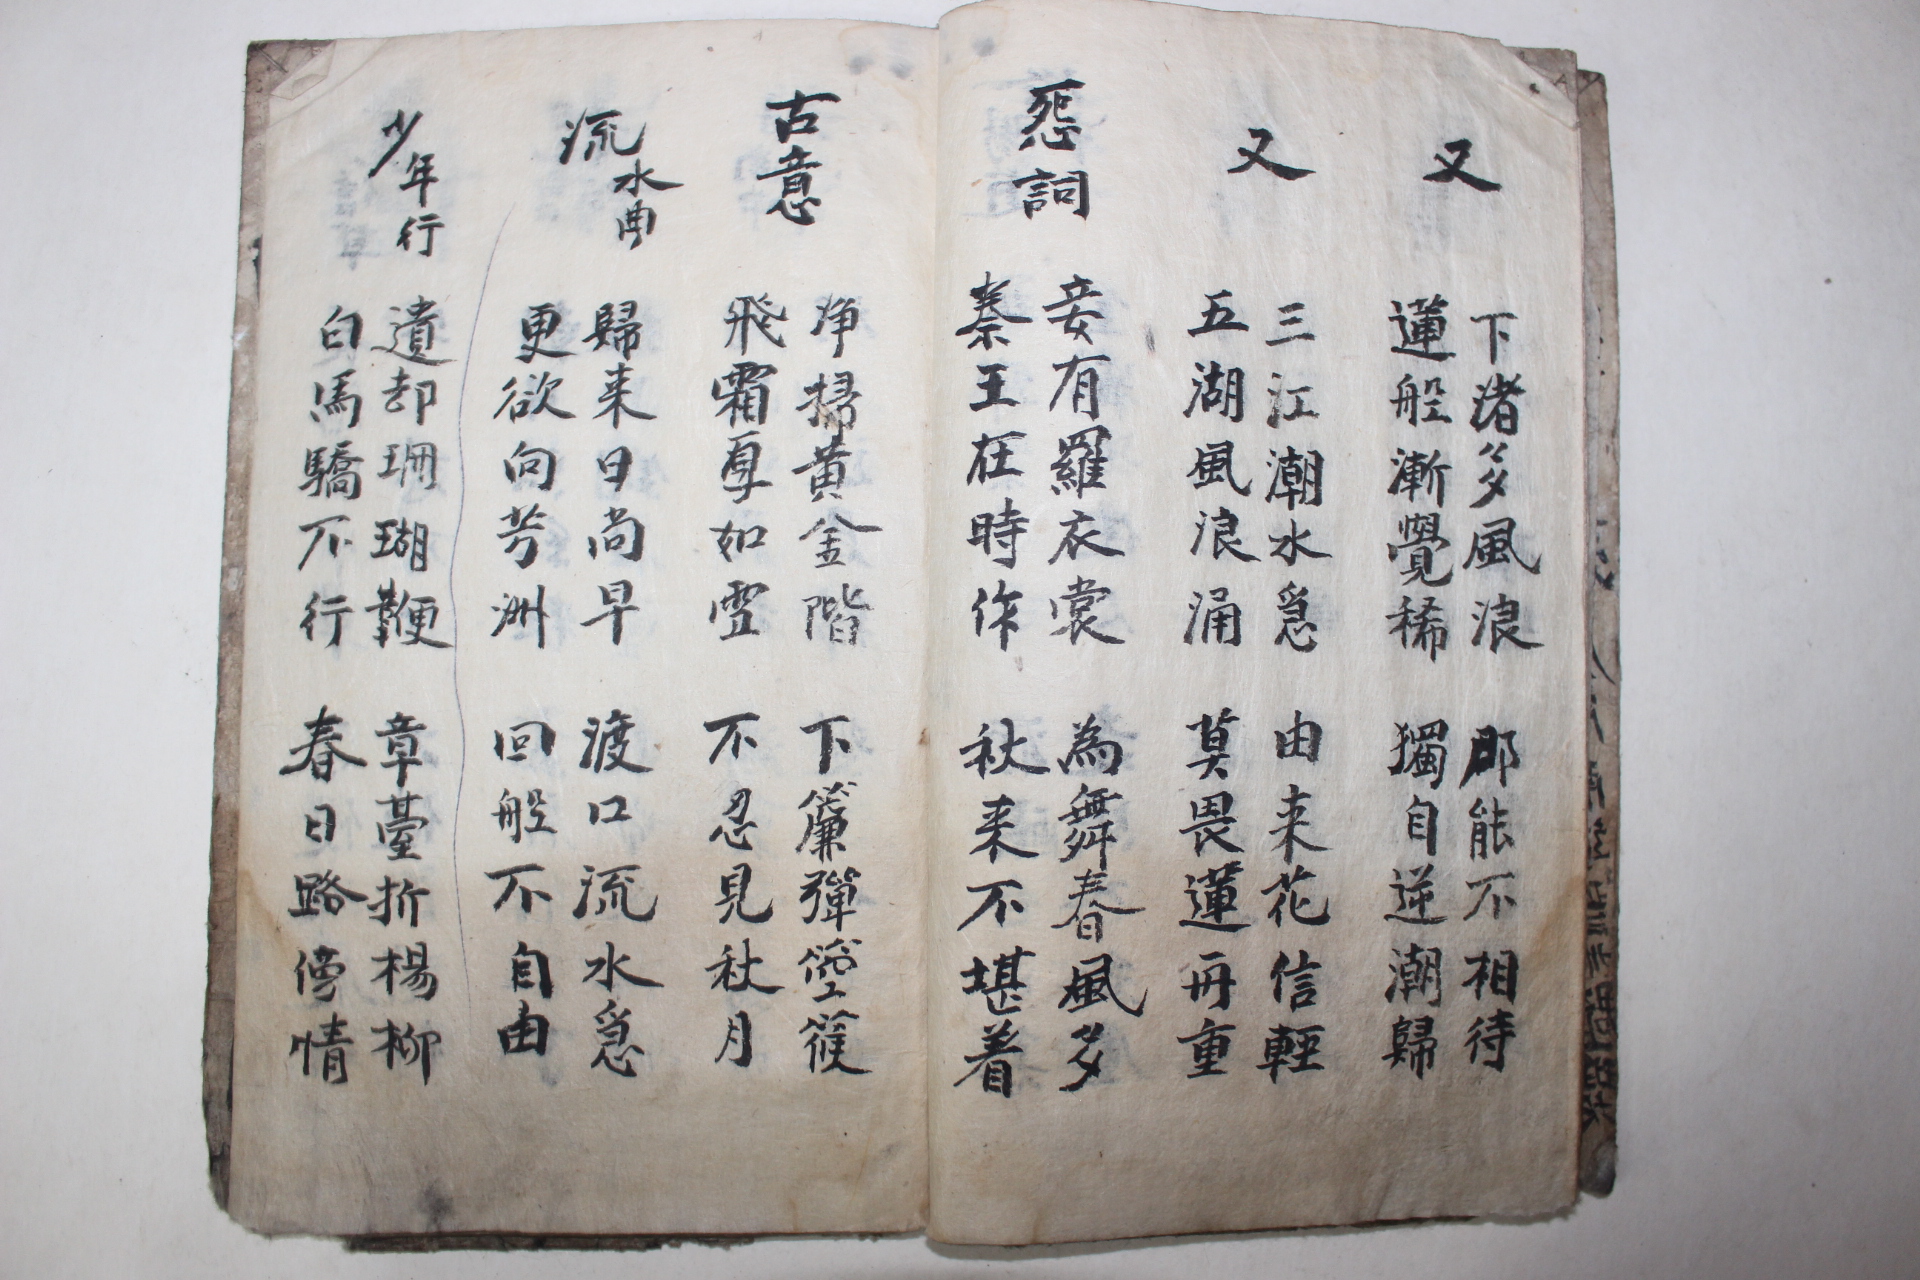 又
下渚多風浪 那能不相待
蓮船漸覺稀 獨自逆潮歸
又
三江潮水急 由来花信輕
五湖風浪涌 莫畏蓮再重
怨詞
妾有羅衣裳 為舞春風多
秦王在時作 秋来不堪着
古意
净掃黄金階 下簾彈箜篌
飛霜厚如雪 不忍見秋月
流水曲
歸来日尚早 渡口流水急
更欲向芳洲 回船不自由
少年行
遺却珊瑚鞭 章臺折楊柳
白馬驕不行 春日路傍情